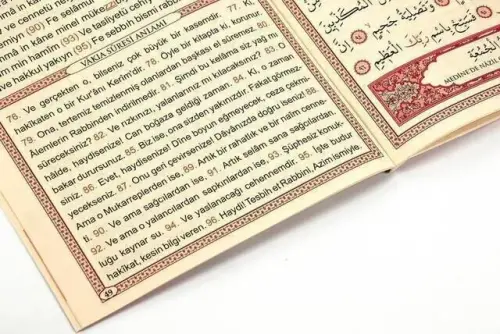 (90) Fe selâmü
in kâne minel
min hamîm (93) Ve tasliyetü
ve hakkul yakıyn (95) Fe sebbih bismi
VÂKIA SÛRESİ ANLAMI
76. Ve gerçekten o, bilseniz çok büyük bir kasemdir. 77. Ki,
hakikaten o bir Kur'ânı Kerim'dir. 78. Öyle bir kitabta ki, korunur.
79. Ona, tertemiz temizlenmiş olanlardan başkası el süremez. 80.
Âlemlerin Rabbinden indirilmedir. 81. Şimdi bu kelâma siz yağ mı
süreceksiniz? 82. Ve rızkınızı, yalanlarınız mı kılacaksınız? 83. O
hâlde, haydisenize! Can boğaza geldiği zaman. 84. Ki, o zaman
bakar durursunuz. 85. Biz ise, ona sizden yakınızdır. Fakat görmez-
siniz. 86. Evet, haydisenize! Dine boyun eğmeyecek, ceza çekmi-
yecekseniz. 87. Onu geri çevirsenize! Dâvânızda doğru iseniz! 88.
Ama o Mukarreplerden ise, 89. Artık bir rahatlık ve bir naîm cenne-
ti. 90. Ve ama sağcılardan ise, 91. Artık selâm sana sağcılardan.
92. Ve ama o yalancılardan sapkınlardan ise, 93. Şüphesiz konuk-
luğu kaynar su. 94. Ve yaslanacağı cehennemdir. 95. İşte budur
hakîkat, kesin bilgi veren. 96. Haydi! Tesbih et Rabbini, Azîm ismiyle.
49
وَتَصْلِيَةُ جَحِيمٍ
فَسَبِّحْ بِاسْمِ رَبِّكَ الْعَظِيمِ
MEDİNE'DE